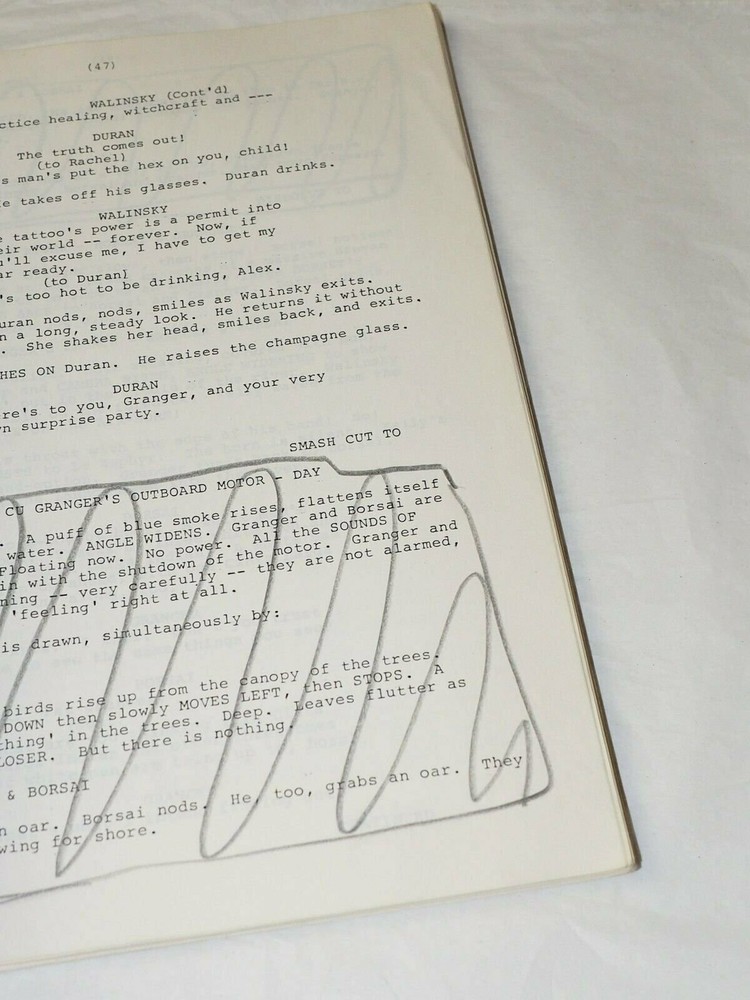 (47)
WALINSKY (Cont'd)
ctice healing, witchcraft and ---
DURAN
The truth comes out!
(to Rachel)
s man's put the hex on you, child!
e takes off his glasses. Duran drinks.
WALINSKY
e tattoo's power is a permit into
eir world -- forever. Now, if
u'll excuse me, I have to get my
ar ready.
(to Duran)
's too hot to be drinking, Alex.
uran nods, nods, smiles as Walinsky exits.
n a long, steady look. He returns it without
. She shakes her head, smiles back, and exits.
HES ON Duran. He raises the champagne glass.
DURAN
re's to you, Granger, and your very
n surprise party.
SMASH CUT TO
CU GRANGER'S OUTBOARD MOTOR - DAY
. A puff of blue smoke rises, flattens itself
water. ANGLE WIDENS. Granger and Borsai are
Floating now. No power. All the SOUNDS OF
in with the shutdown of the motor. Granger and
ning -- very carefully -- they are not alarmed,
'feeling' right at all.
is drawn, simultaneously by:
birds rise up from the canopy of the trees.
DOWN then slowly MOVES LEFT, then STOPS. A
thing' in the trees. Deep. Leaves flutter as
LOSER. But there is nothing.
& BORSAI
n oar. Borsai nods. He, too, grabs an oar. They
wing for shore.